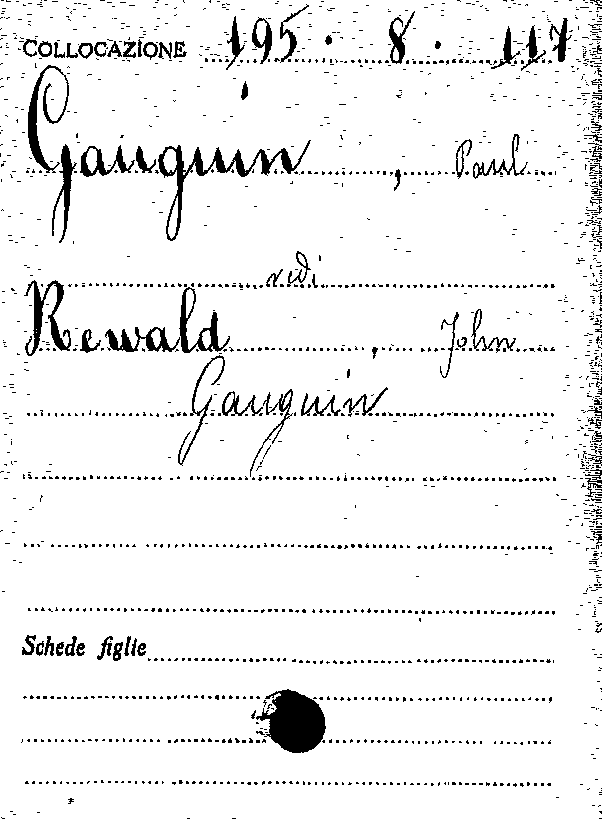 COLLOCAZIONE 195 . 8 . 117
Gauguin , Paul
vedi
Rewald , John
Gauguin
Schede figlie